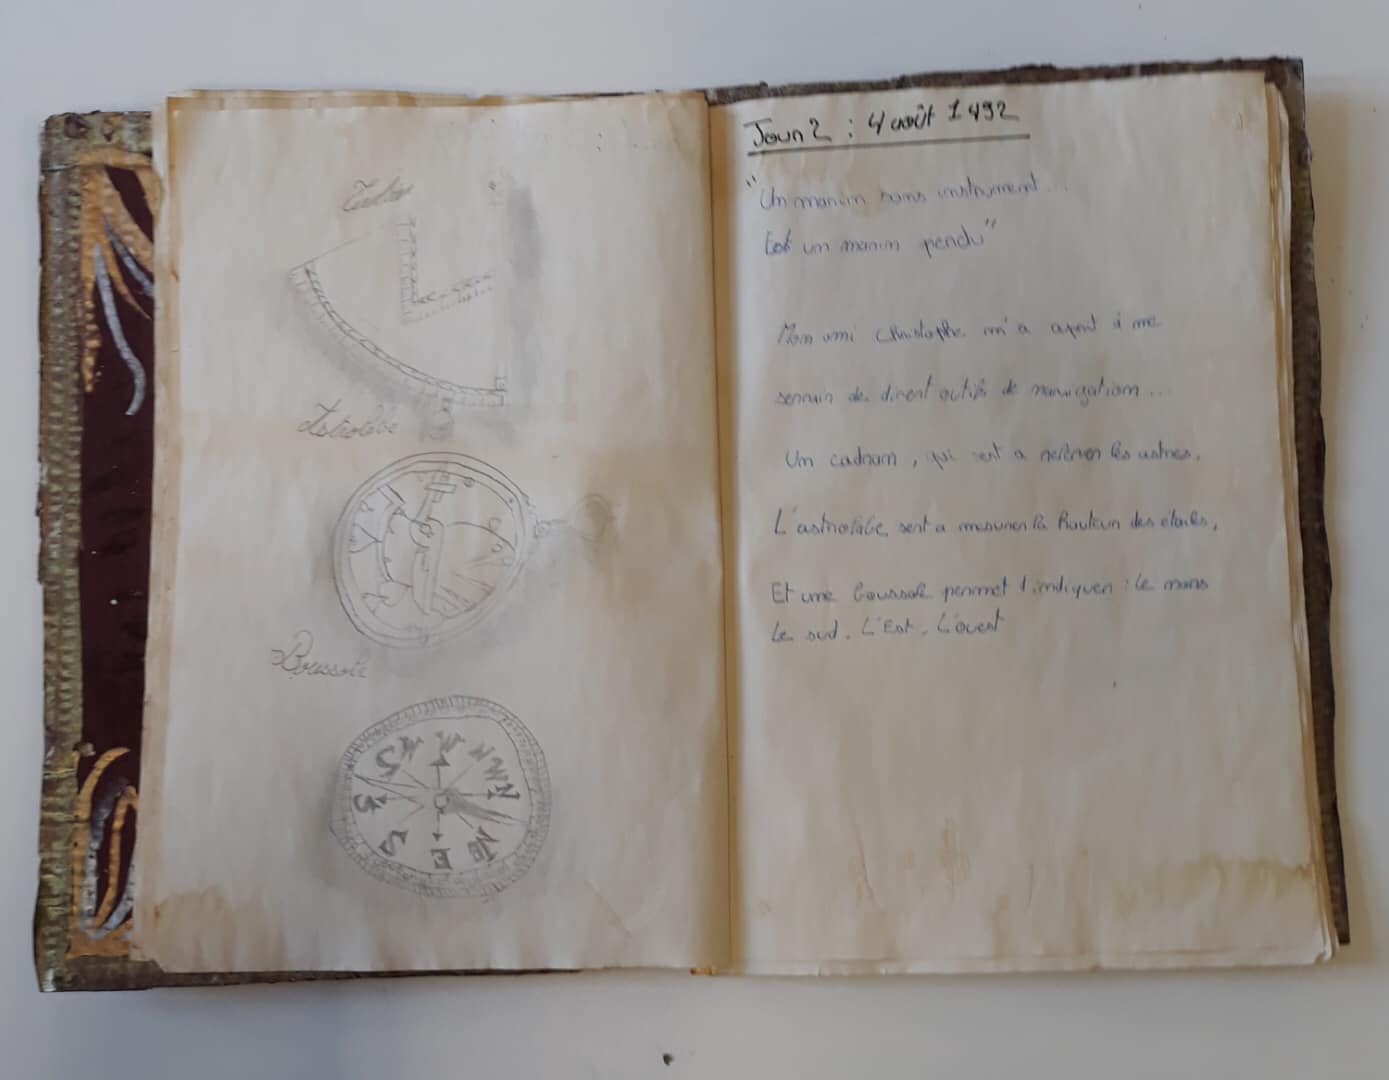 Astrolabe
Boussole
N
NE
E
S
Jour 2 : 4 août 1492
"Un marin sans instrument...
Est un marin perdu"
Mon ami Christophe m'a aprit à me
servir de divert outils de navigation...
Un cadran, qui sert a repérer les astres.
L'astrolabe sert a mesurer la hauteur des étoiles,
Et une boussole permet d'indiquer : Le nord
Le sud. L'Est. L'ouest